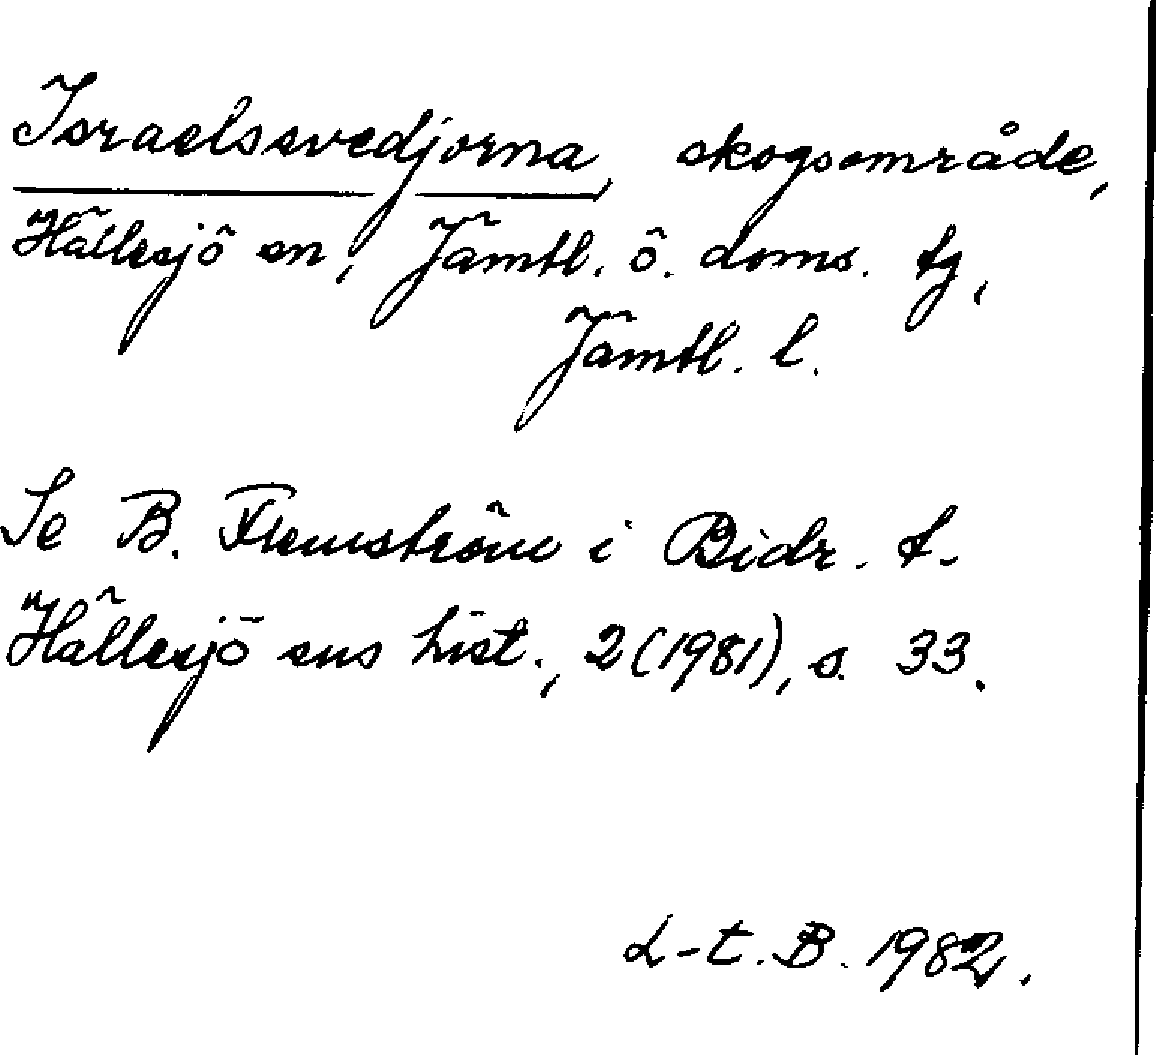 Israelssvedjorna, skogsområde,
Hällesjö sn, Jämtl. ö. doms. tg,
Jämtl. l.
Se B. Flemström i Bidr. t.
Hällesjö sns hist., 2 (1981), s. 33.
L-t. B. 1982.